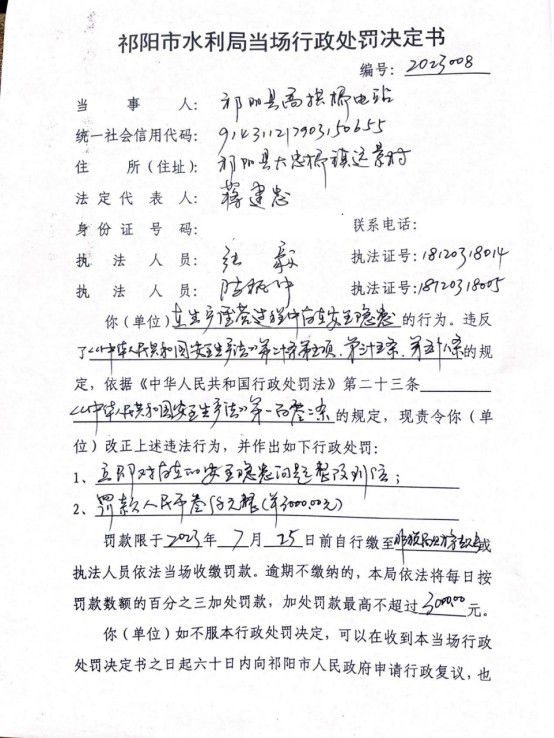 祁阳市水利局当场行政处罚决定书
编号：2023008
当事人：祁阳县高拱桥电站
统一社会信用代码：914311217903150655
住所（住址）：祁阳县大忠桥镇远景村
法定代表人：蒋建忠
身份证号码： 联系电话：
执法人员：张毅 执法证号：18120318014
执法人员：陆 执法证号：18120318005
你（单位）在生产运营过程中存在安全隐患的行为。违反
了《中华人民共和国安全生产法》第二十条第五项、第三十五条、第五十八条的规
定，依据《中华人民共和国行政处罚法》第二十三条
《中华人民共和国安全生产法》第一百零二条的规定，现责令你（单
位）改正上述违法行为，并作出如下行政处罚：
1、立即对存在的安全隐患问题整改到位；
2、罚款人民币叁仟元整（￥3000.00元）
罚款限于2023年7月25日前自行缴至或
执法人员依法当场收缴罚款。逾期不缴纳的，本局依法将每日按
罚款数额的百分之三加处罚款，加处罚款最高不超过3000.00元。
你（单位）如不服本行政处罚决定，可以在收到本当场行政
处罚决定书之日起六十日内向祁阳市人民政府申请行政复议，也